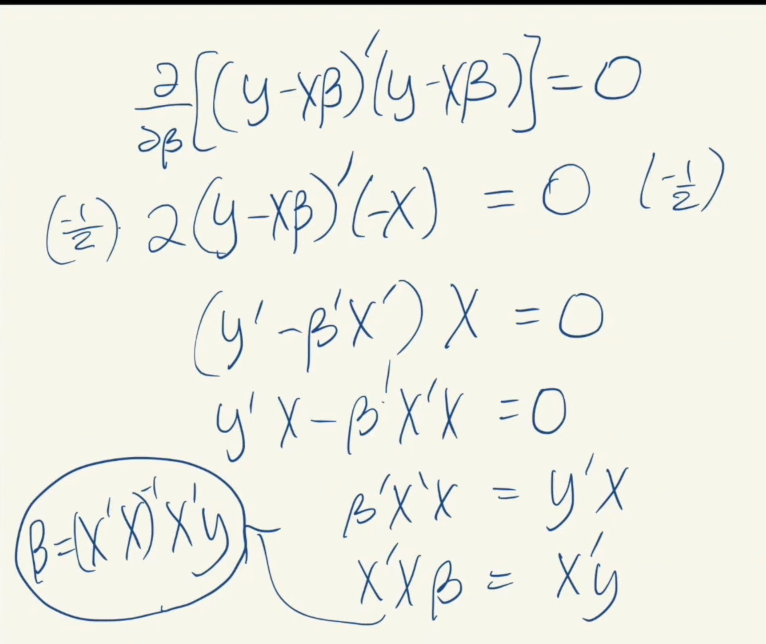 ∂/∂β [(y-Xβ)'(y-Xβ)] = 0
(-1/2) · 2(y-Xβ)'(-X) = 0 (-1/2)
(y' - β'X') X = 0
y'X - β'X'X = 0
β'X'X = y'X
X'Xβ = X'y
β = (X'X)⁻¹X'y